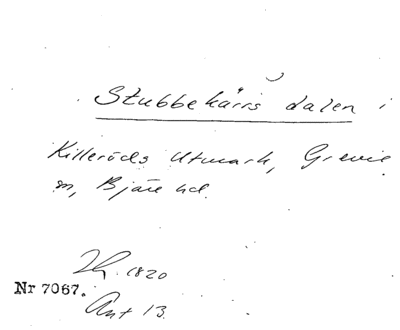 Stubbekärrs dalen i
Killeröds Utmark, Grevie
sn, Bjäre hd.
1820
Nr 7067.
Ant 13.